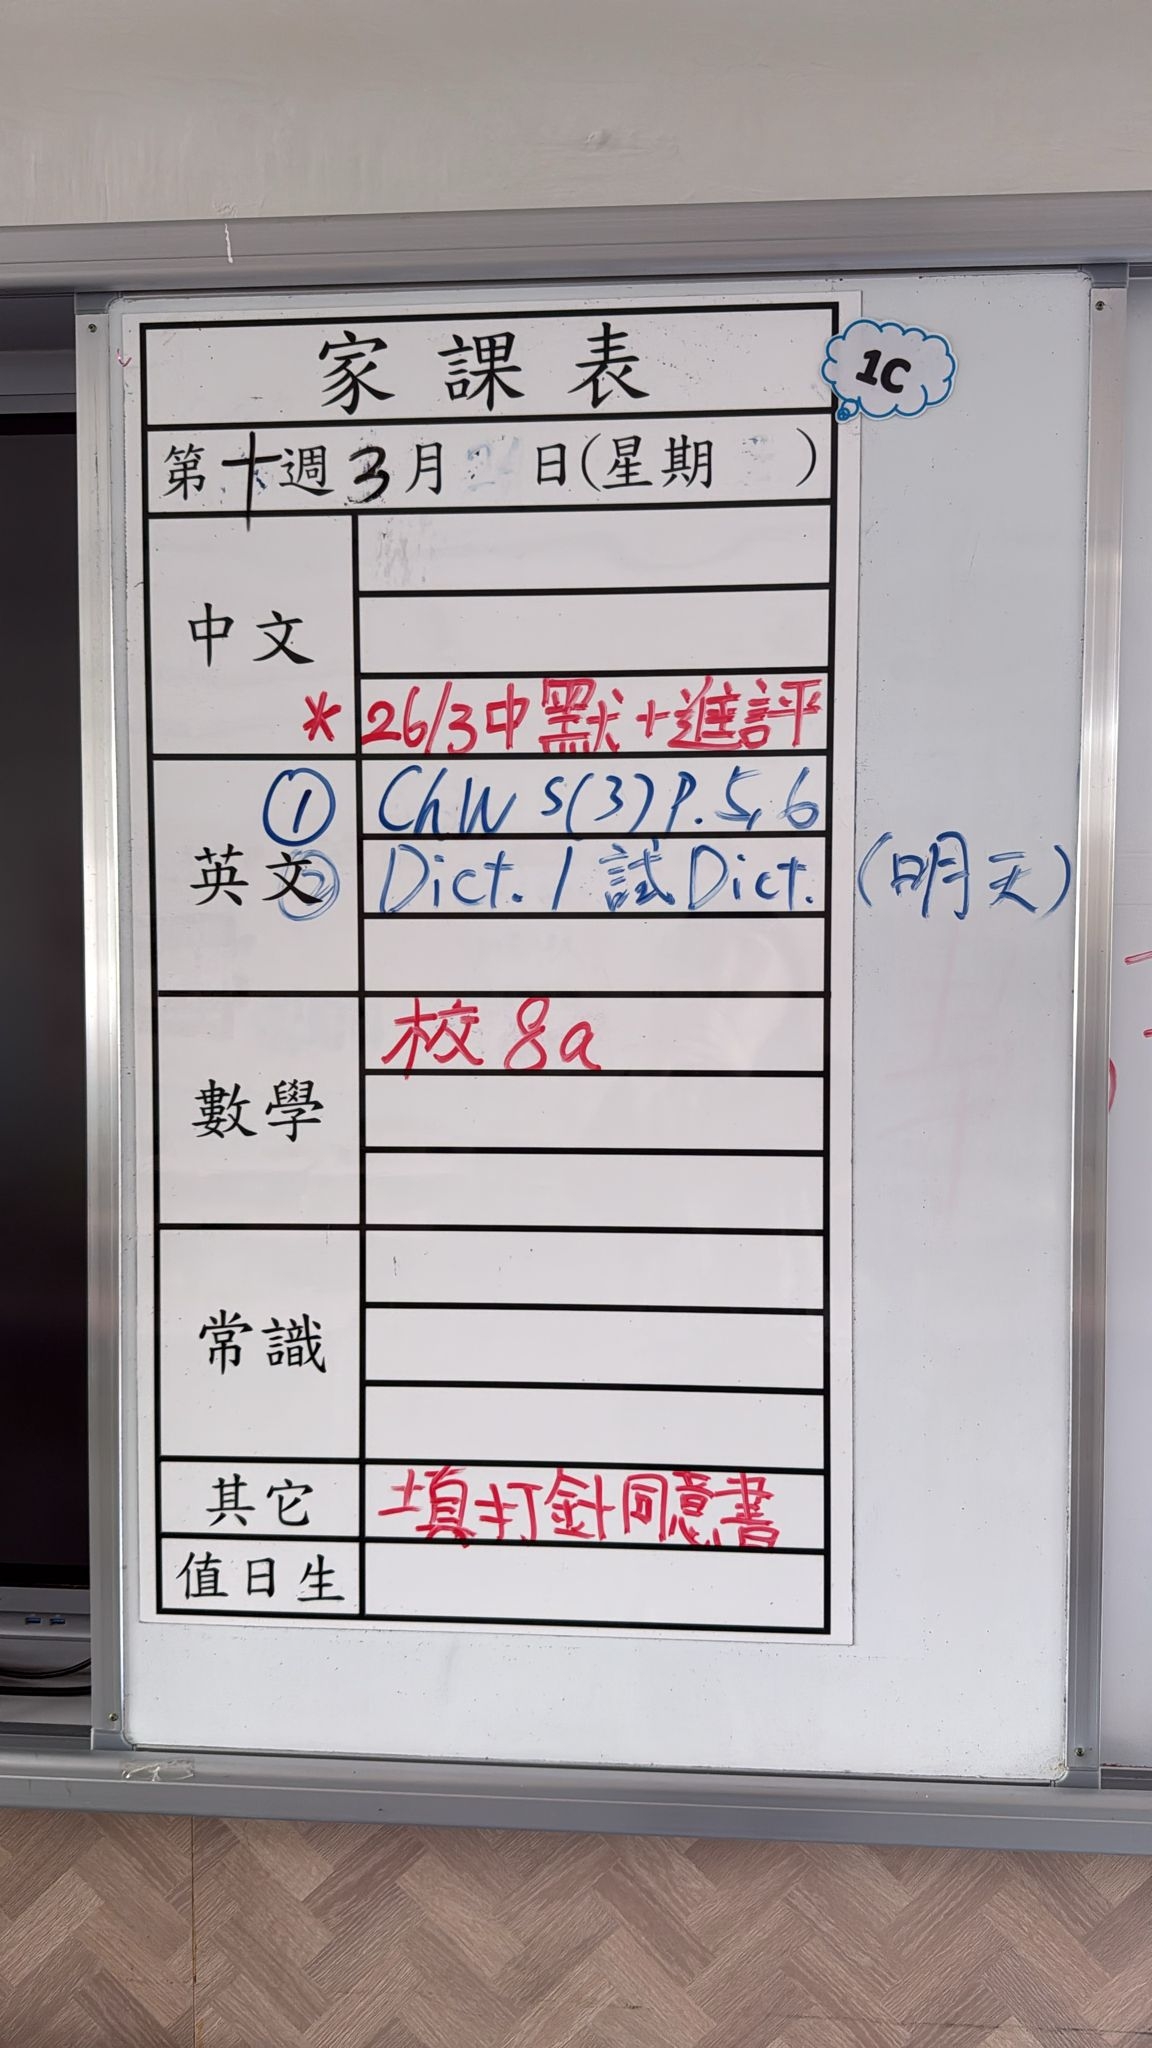 家課表
1C
第十週3月 日(星期 )
中文
* 26/3中默+進評
英文
① ChW s(3) P.5,6
② Dict. 1 試Dict. (明天)
數學
校 8a
常識
其它
填打針同意書
值日生